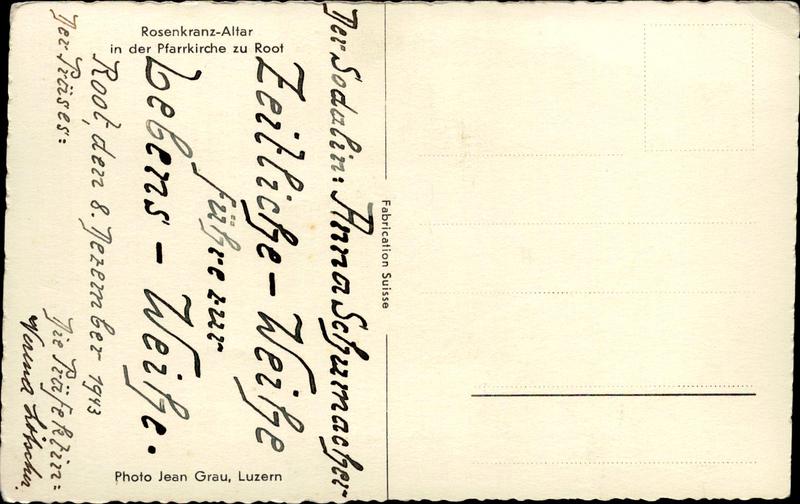 Rosenkranz-Altar
in der Pfarrkirche zu Root
Der Sodalin: Anna Schumacher
Zeitliche-Weihe
führe zur
Lebens-Weihe.
Root, den 8. Dezember 1943
Der Präses:
Die Präfektin:
Photo Jean Grau, Luzern
Fabrication Suisse